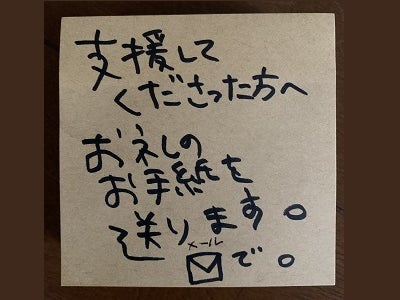 支援して
くださった方へ
お礼の
お手紙を
送ります。
メール
✉で。